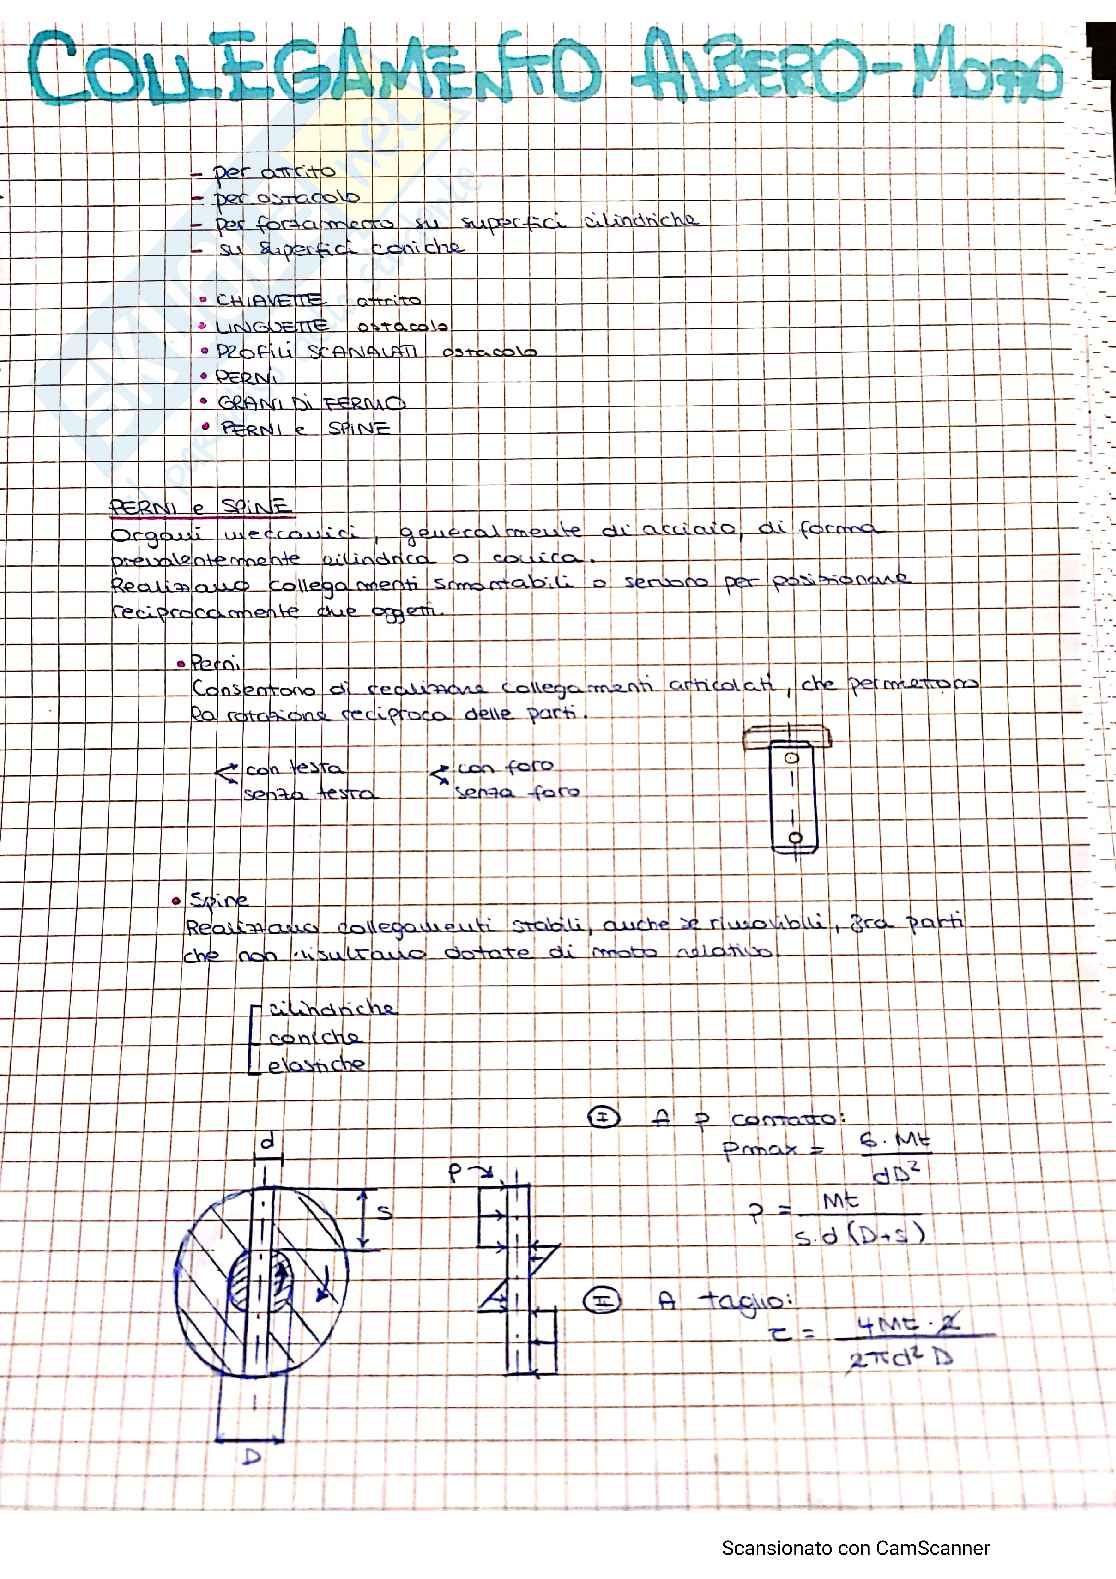 COLLEGAMENTO ALBERO-MOZZO
- per attrito
- per ostacolo
- per forzamento su superfici cilindriche
- su superfici coniche
• CHIAVETTE attrito
• LINGUETTE ostacolo
• PROFILI SCANALATI ostacolo
• PERNI
• GRANI DI FERMO
• PERNI e SPINE
PERNI e SPINE
Organi meccanici, generalmente di acciaio, di forma
prevalentemente cilindrica o conica.
Realizzano collegamenti smontabili o servono per posizionare
reciprocamente due oggetti.
• Perni
Consentono di realizzare collegamenti articolati, che permettono
la rotazione reciproca delle parti.
con testa con foro
senza testa senza foro
• Spine
Realizzano collegamenti stabili, anche se rimovibili, fra parti
che non risultano dotate di moto relativo.
cilindriche
coniche
elastiche
I A p contatto:
pmax = 6·Mt / dD²
p = Mt / s·d(D+s)
II A taglio:
τ = 4Mt·2 / 2πd²D
d
s
D
p
Scansionato con CamScanner